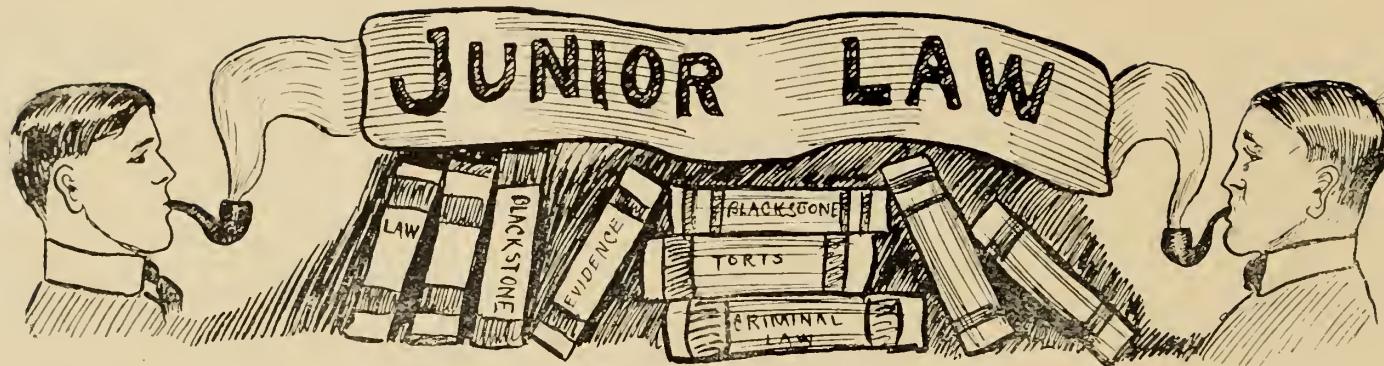 JUNIOR LAW
LAW
BLACKSTONE
EVIDENCE
BLACKSTONE
TORTS
CRIMINAL
LAW